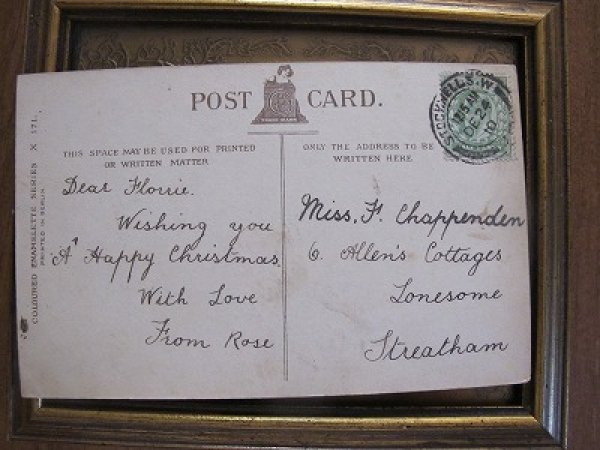 POST CARD.
THIS SPACE MAY BE USED FOR PRINTED
OR WRITTEN MATTER
ONLY THE ADDRESS TO BE
WRITTEN HERE.
Dear Florrie.
Wishing you
A Happy Christmas
With Love
From Rose
Miss. F. Chappenden
6. Allen's Cottages
Lonesome
Streatham
COLOURED ENAMELETTE SERIES X 171.
PRINTED IN BERLIN
DE 24
10